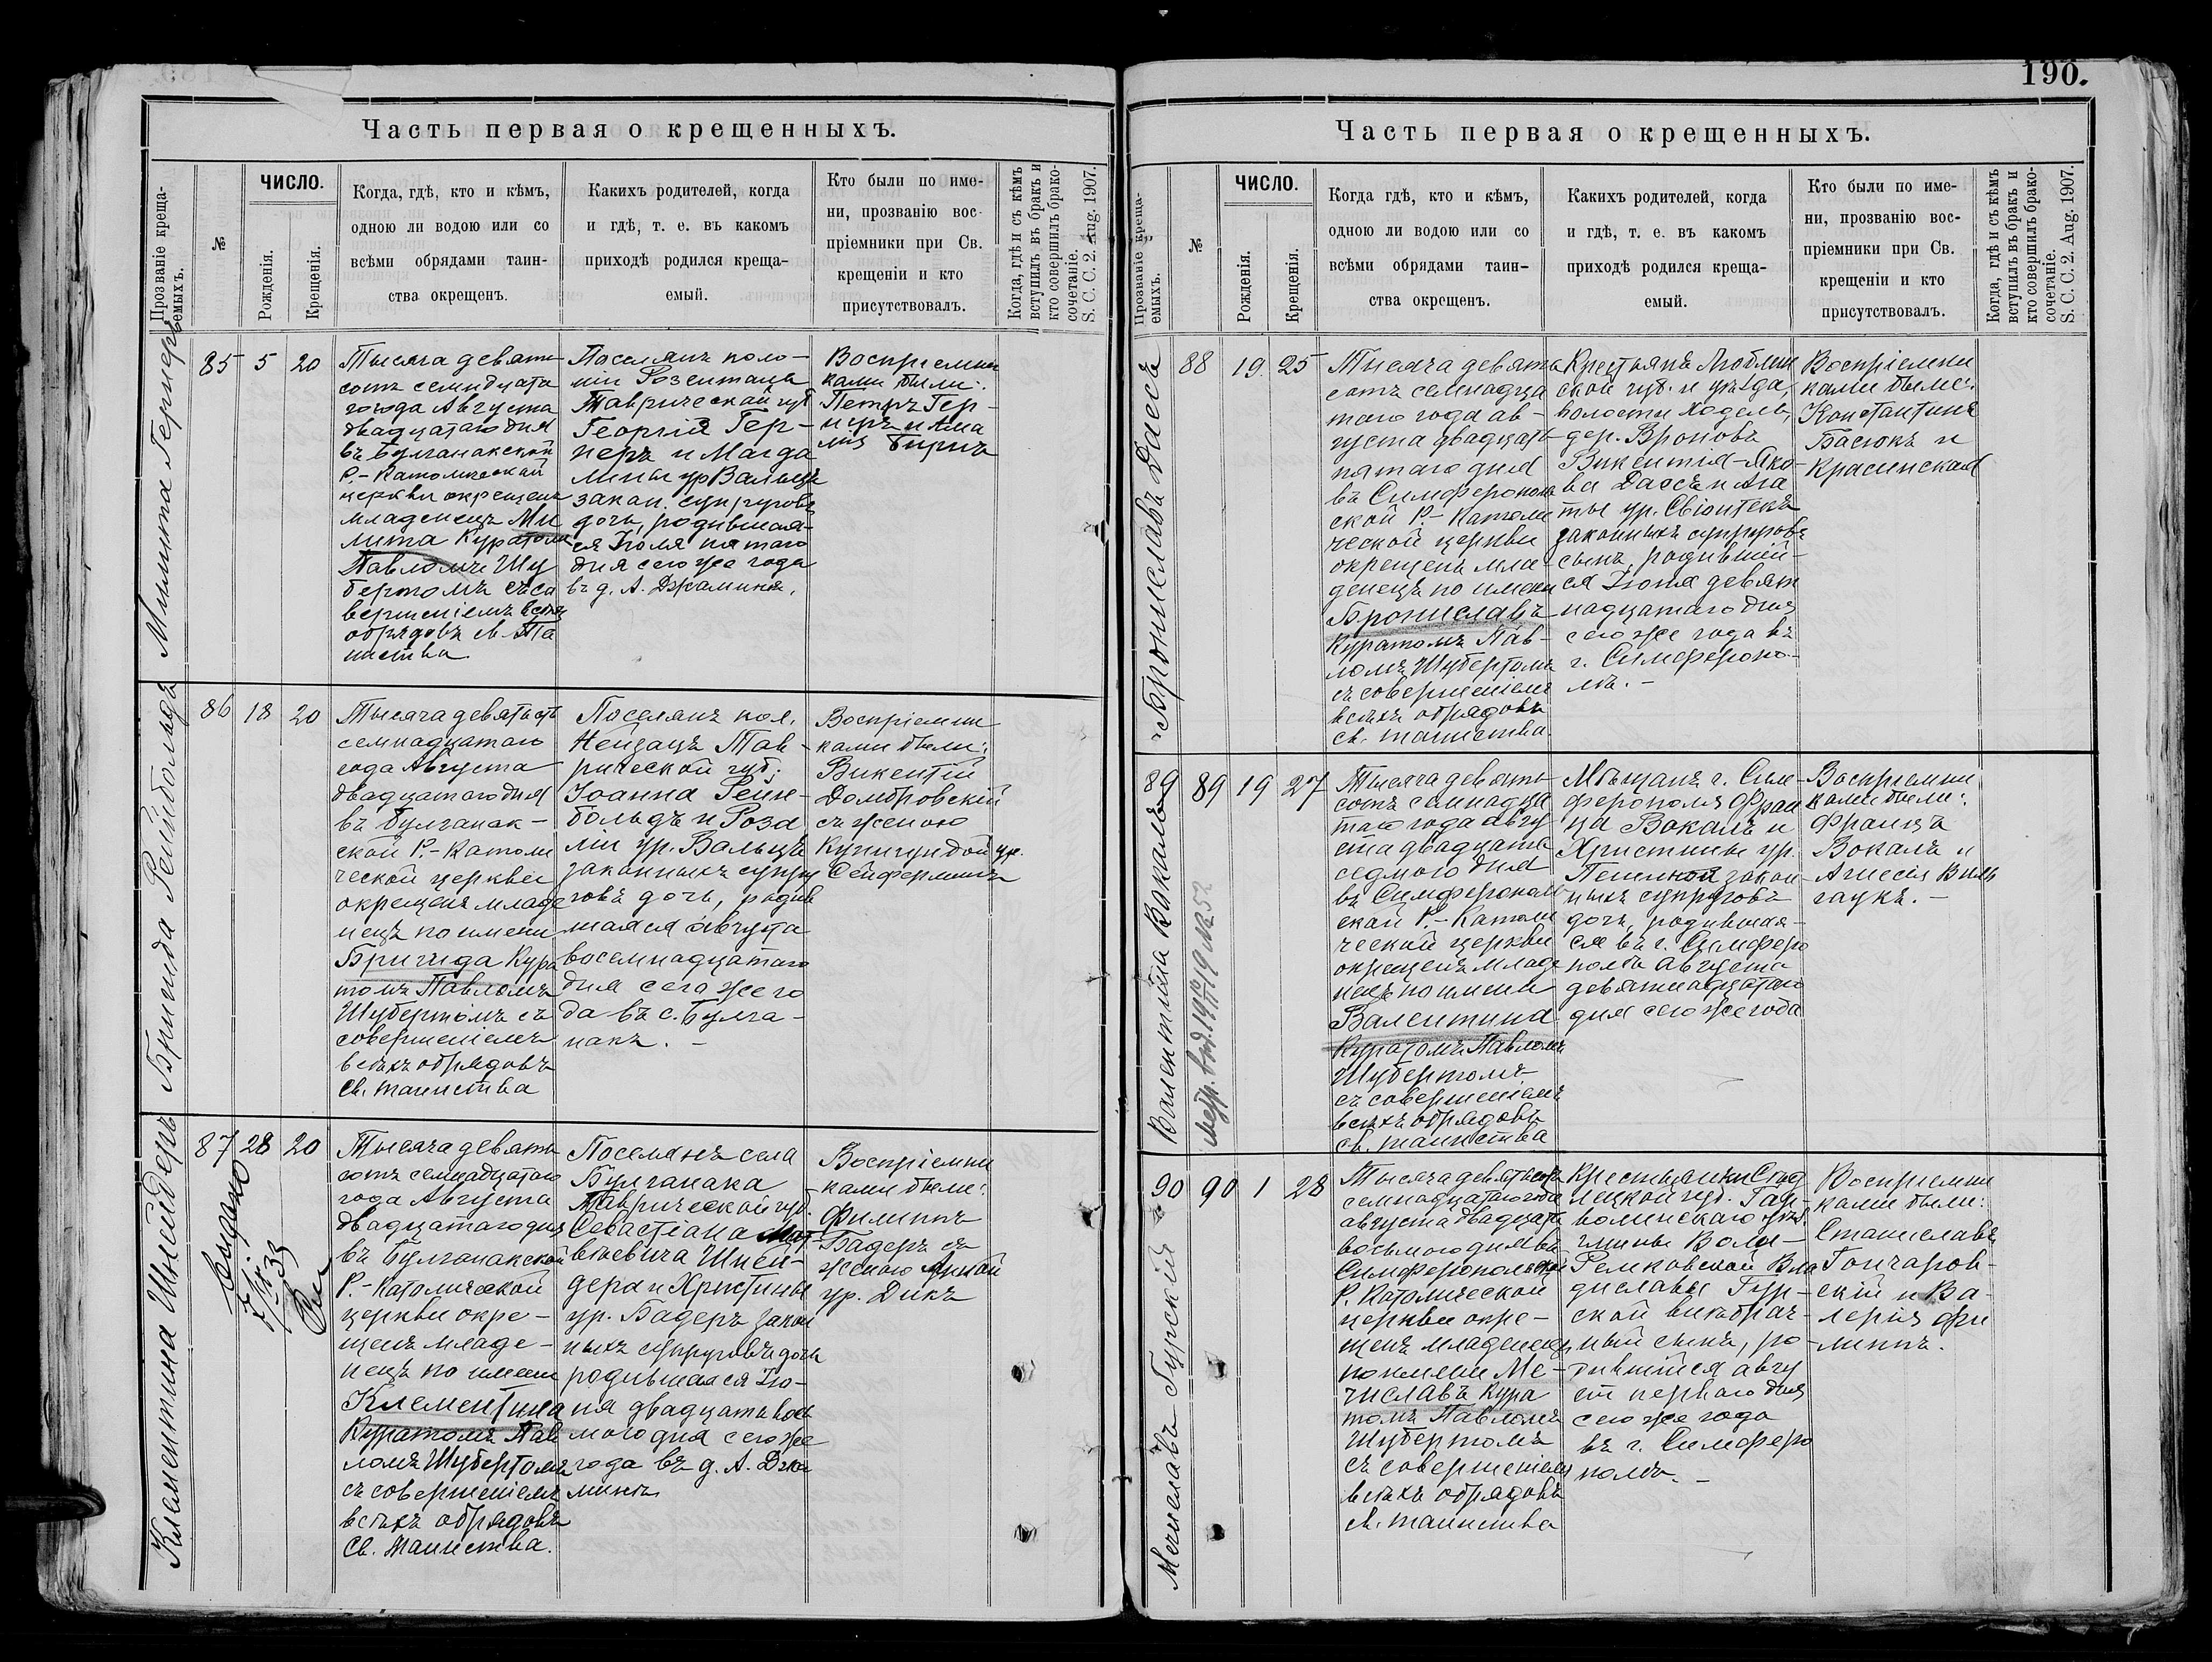 190.
Часть первая о крещенныхъ.
Прозваніе крещаемыхъ.
№
ЧИСЛО.
Рожденія.
Крещенія.
Когда, гдѣ, кто и кѣмъ,
одною ли водою или со
всѣми обрядами таин-
ства окрещенъ.
Какихъ родителей, когда
и гдѣ, т. е. въ какомъ
приходѣ родился креща-
емый.
Кто были по име-
ни, прозванію вос-
пріемники при Св.
крещеніи и кто
присутствовалъ.
Когда, гдѣ и съ кѣмъ
вступилъ въ бракъ и
кто совершилъ брако-
сочетаніе.
S. C. C. 2. Aug. 1907.
85 5 20
Тысяча девять
сотъ семнадцата
го года Августа
двадцатаго дня
въ Булганакской
Р.-Католической
церкви окрещенъ
младенецъ Ми
лита Куратомъ
Павломъ Шу
бертомъ съ со
вершеніемъ всѣхъ
обрядовъ св. Та
инства.
Поселянъ коло-
ніи Розенталь
Таврической губ
Георгія Гер-
неръ и Магда
лины ур Вальцъ
закон. супруговъ
дочь, родившая-
ся Іюля пятаго
дня сего же года
въ д. А. Джаминъ.
Воспріемни
ками были:
Петръ Гер-
неръ и Ама
лія Бирнъ
Бригида Рейнбольдъ
86 18 20
Тысяча девятьсотъ
семнадцатаго
года Августа
двадцатаго дня
въ Булганак-
ской Р.-Католи
ческой церкви
окрещенъ младе
нецъ по имени
Бригида Кура
томъ Павломъ
Шубертомъ съ
совершеніемъ
всѣхъ обрядовъ
Св. таинства
Поселянъ кол.
Нейзацъ Тав-
рической губ.
Іоанна Рейн-
больдъ и Роза
ліи ур. Вальцъ
законныхъ супру
говъ дочь, родив
шаяся августа
восемнадцатаго
дня сего же го
да въ с. Булга-
накъ. -
Воспріемни
ками были:
Викентій
Домбровскій
съ женою
Кунигундой ур.
Клементина Шнейдеръ
87 28 20
Выдано
Тысяча девять
сотъ семнадцатаго
года Августа
двадцатаго дня
въ Булганакской
Р.-Католической
церкви окре-
щенъ младе-
нецъ по имени
Клементина
Куратомъ Пав
ломъ Шубертомъ
съ совершеніемъ
всѣхъ обрядовъ
Св. Таинства.
Поселянъ села
Булганака
Таврической губ.
Севастіана Мат-
вѣевича Шней-
дера и Христины
ур. Бадеръ закон
ныхъ супруговъ дочь
родившаяся Ію-
ля двадцать вось
мого дня сего же
года въ д. А. Джа
минъ
Воспріемни
ками были:
Филиппъ
Бадеръ съ
женою Анной
ур. Дикъ
Часть первая о крещенныхъ.
Прозваніе креща-
емыхъ.
№
ЧИСЛО.
Рожденія.
Крещенія.
Когда гдѣ, кто и кѣмъ,
одною ли водою или со
всѣми обрядами таин-
ства окрещенъ.
Какихъ родителей, когда
и гдѣ, т. е. въ какомъ
приходѣ родился креща-
емый.
Кто были по име-
ни, прозванію вос-
пріемники при Св.
крещеніи и кто
присутствовалъ.
Когда, гдѣ и съ кѣмъ
вступилъ въ бракъ и
кто совершилъ брако-
сочетаніе.
S. C. C. 2. Aug. 1907.
Брониславъ Дассъ
88 19 25
Тысяча девять
сотъ семнадца
таго года ав-
густа двадцать
пятаго дня
въ Симферополь
ской Р.-Католи
ческой церкви
окрещенъ мла-
денецъ по имени
Брониславъ
Куратомъ Пав-
ломъ Шубертомъ
съ совершеніемъ
всѣхъ обрядовъ
св. таинства.
Крестьянъ Люблин
ской губ. и уѣзда,
волости Ходель,
дер. Вроновъ
Викентія-Яко-
ва Дассъ и Ага
ты ур. Свіонтекъ
законныхъ супруговъ
сынъ, родившій-
ся Іюля девят
надцатаго дня
сего же года въ
г. Симферопо-
лѣ. -
Воспріемни
ками были:
Константинъ
Басюкъ и
Красинская
Валентина Вокалъ
89
89 19 27
Тысяча девять
сотъ семнадца
таго года авгу
ста двадцать
седмого дня
въ Симферополь
ской Р.-Католи
ческой церкви
окрещенъ младе
нецъ по имени
Валентина
Куратомъ Павломъ
Шубертомъ
съ совершеніемъ
всѣхъ обрядовъ
св. таинства
Мѣщанъ г. Сим-
ферополя Фран
ца Вокалъ и
Христины ур.
закон-
ныхъ супруговъ
дочь, родившая-
ся въ г. Симферо
полѣ августа
девятнадцатаго
дня сего же года
Воспріемни
ками были:
Францъ
Вокалъ и
Агнесія Виль
гаукъ. -
Мечиславъ Гурскій
90
90 1 28
Тысяча девятьсотъ
семнадцатаго года
августа двадцать
восьмого дня въ
Симферопольской
Р. Католической
церкви окре-
щенъ младенецъ
по имени Ме-
числавъ Кура
томъ Павломъ
Шубертомъ
съ совершеніемъ
всѣхъ обрядовъ
св. таинства
Крестьянки Сѣд
лецкой губ. Гар-
волинскаго уѣз.
гмины Воля-
Ремковской Вла
диславы Гур-
ской внѣбрач-
ный сынъ, ро-
дившійся авгу
ст перваго дня
сего же года
въ г. Симферо
полѣ. -
Воспріемни
ками были:
Станиславъ
Гончаров-
скій и Ва-
лерія Фи
липпъ.